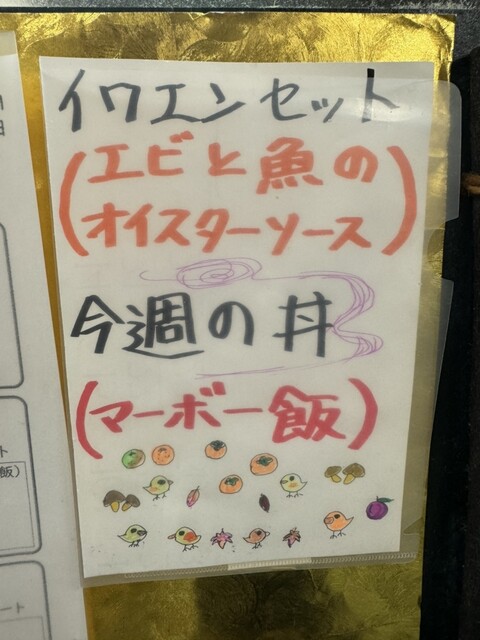 イワエンセット
(エビと魚の
オイスターソース)
今週の丼
(マーボー飯)
ト
飯)
ート